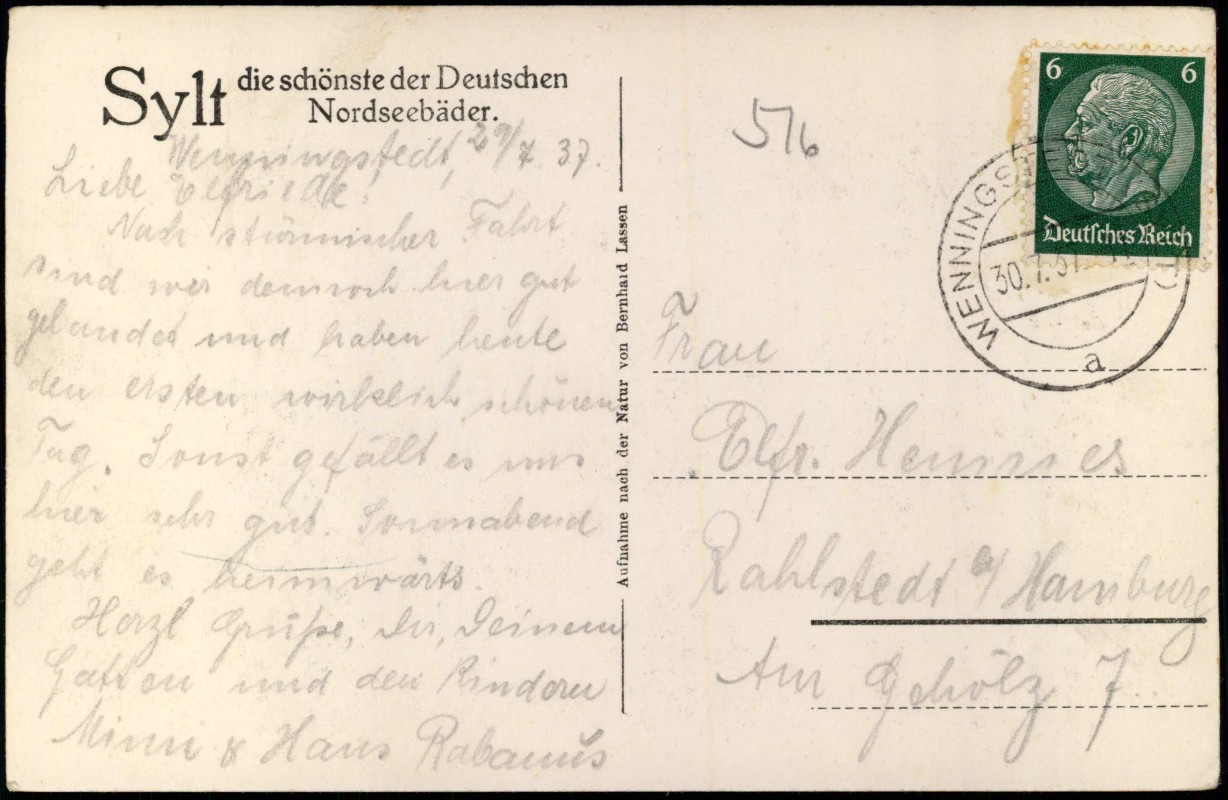 Sylt die schönste der Deutschen
Nordseebäder.
Wenningstedt, 29/7. 37.
Liebe Elfriede!
Nach stürmischer Fahrt
sind wir dennoch hier gut
gelandet und haben heute
den ersten wirklich schönen
Tag. Sonst gefällt es uns
hier sehr gut. Sonnabend
geht es heimwärts.
Herzl Grüße, Dir, Deinem
Gatten und den Kindern
Minni & Hans Rabanus
Aufnahme nach der Natur von Bernhard Lassen
516
6 6
Deutsches Reich
WENNINGST
30.7.37
a
Frau
Elfr. Hennies
Rahlstedt a/ Hamburg
Am Gehölz 7.